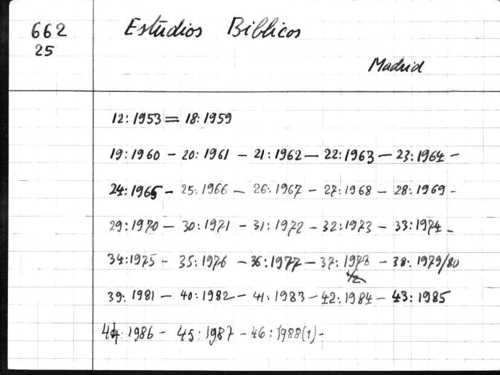 662
25
Estudios Bíblicos
Madrid
12:1953 = 18:1959
19:1960 - 20:1961 - 21:1962 - 22:1963 - 23:1964 -
24:1965 - 25:1966 - 26:1967 - 27:1968 - 28:1969 -
29:1970 - 30:1971 - 31:1972 - 32:1973 - 33:1974 -
34:1975 - 35:1976 - 36:1977 - 37:1978 - 38:1979/80
1/2
39:1981 - 40:1982 - 41:1983 - 42:1984 - 43:1985
44:1986 - 45:1987 - 46:1988(1) -